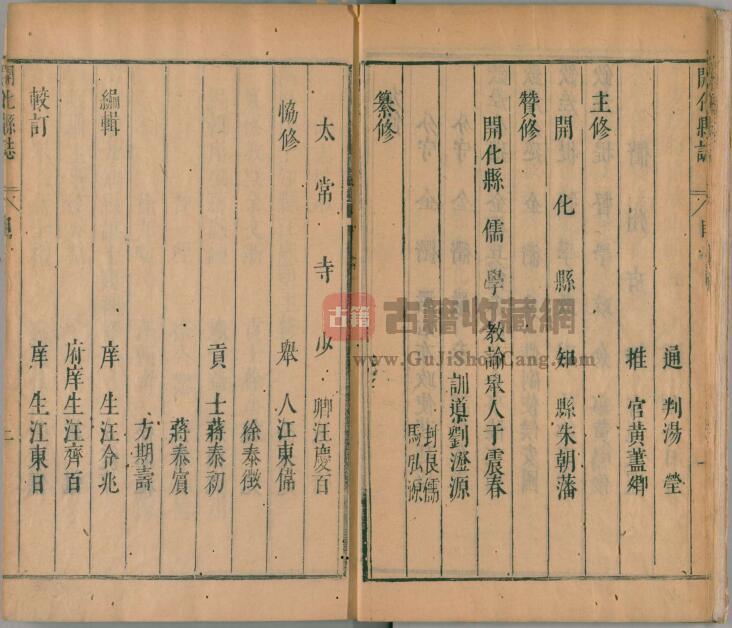 開化縣誌
通判湯瑩
推官黃藎卿
主修
開化縣知縣朱朝藩
贊修
開化縣儒學教諭舉人于震春
訓導劉瀣源
封良儒
馬泓源
纂修
太常寺少卿汪慶百
恊修
舉人江東偉
徐泰徵
貢士蔣泰初
蔣泰賔
方期壽
編輯
庠生汪令兆
府庠生汪齊百
較訂
庠生江東日
開化縣誌
古籍
古籍收藏網
www.GuJiShouCang.com